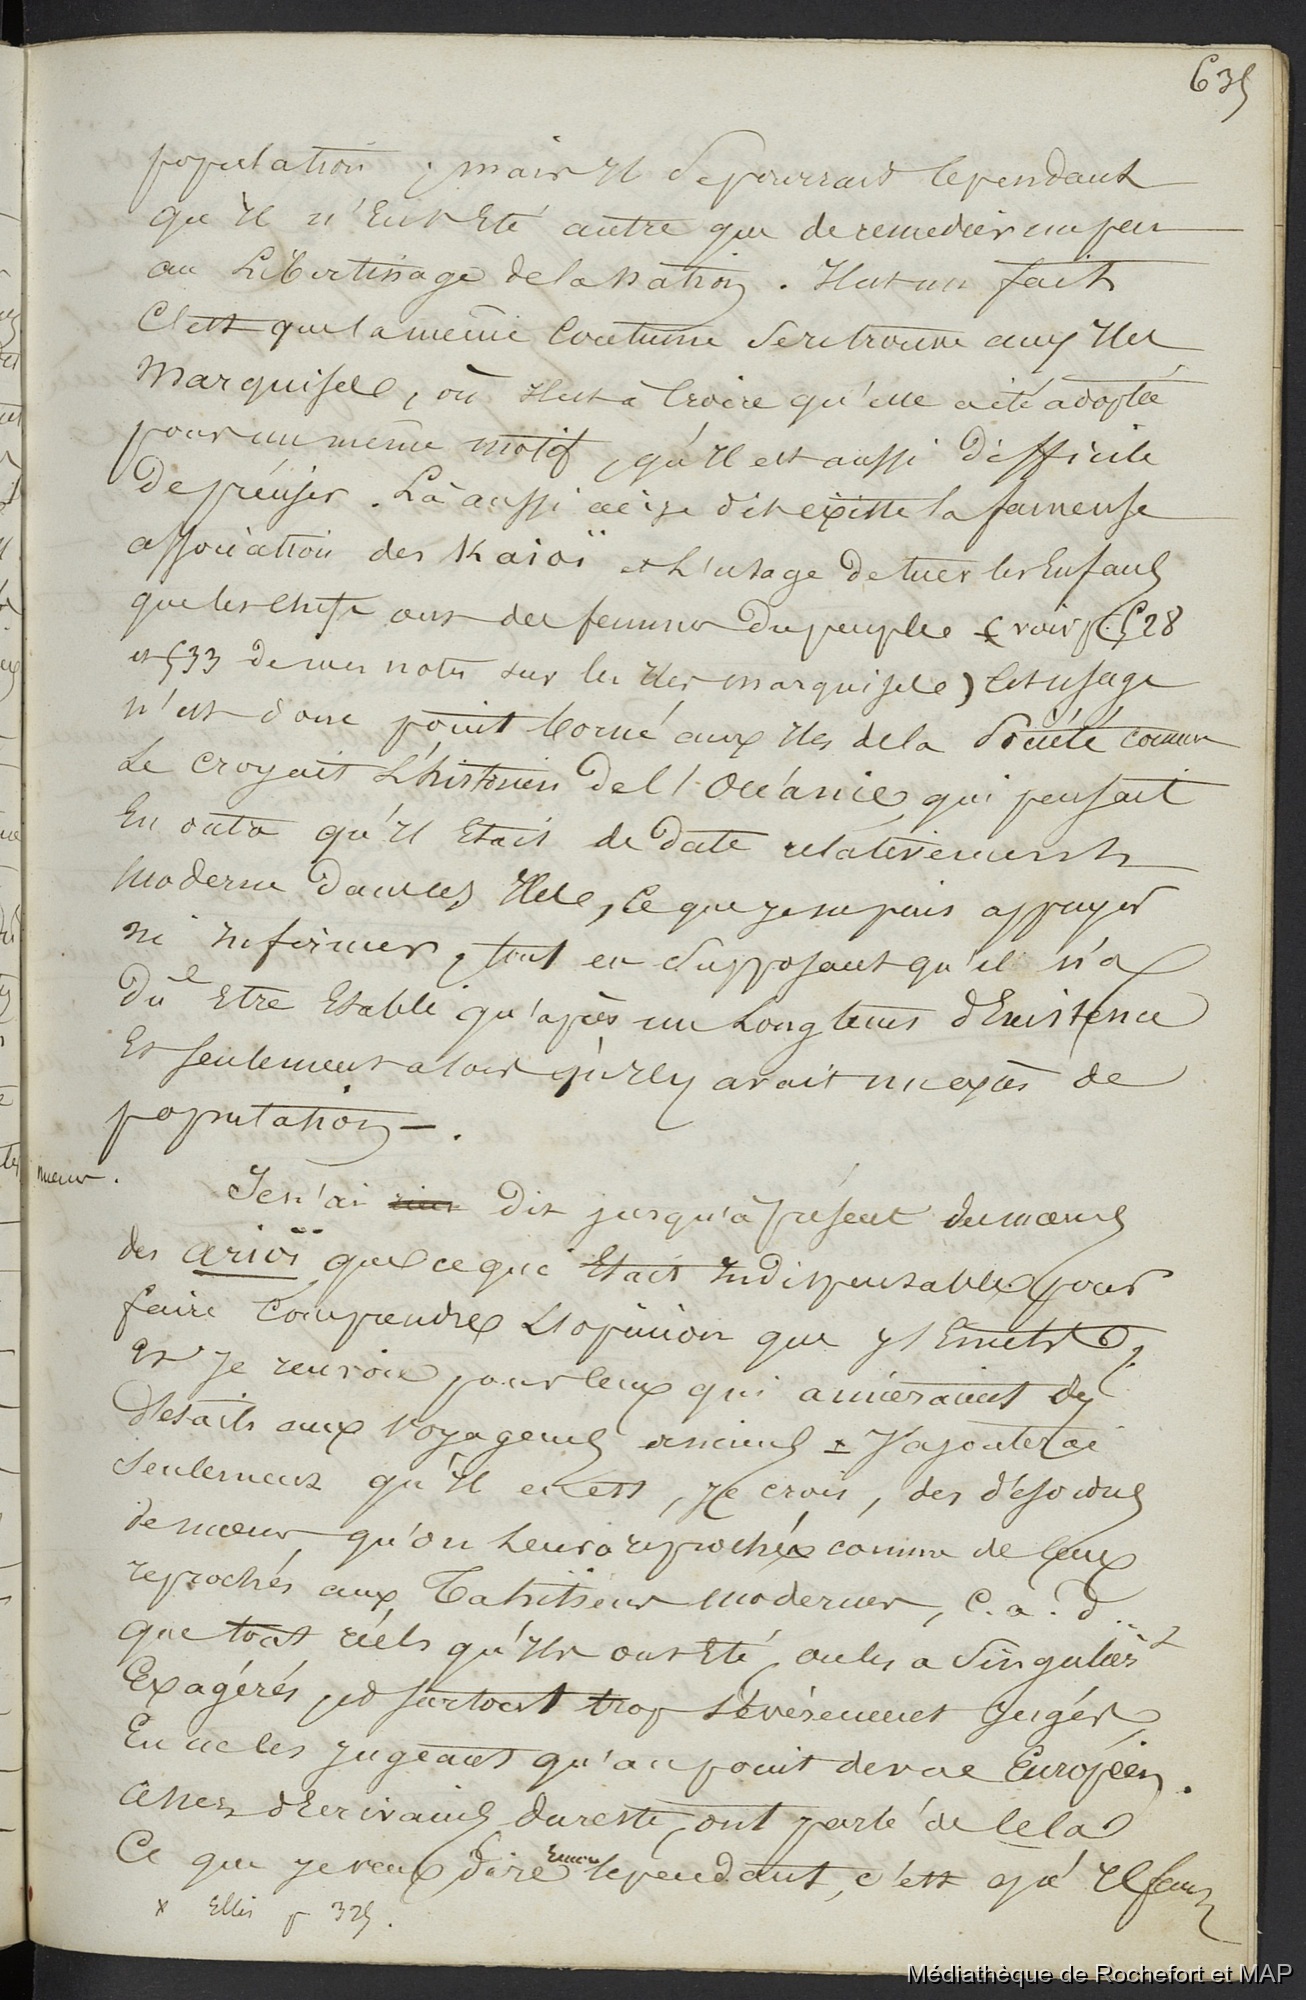 635
population ; mais Il se pourrait cependant
qu'Il n'Eut Eté autre que de remedier un peu
au Libertinage de la Nation. Il est un fait
C'est que la même Coutume se retrouve aux Iles
Marquises, où Il est à Croire qu'elle a été adoptée
pour un même motif, qu'Il est aussi difficile
de préciser. Là aussi ai-je dit existe la fameuse
association des Kaioï et L'usage de tuer les Enfans
que les chefs ont des femmes du peuple (voir p. 528
et 533 de mes notes sur les Iles marquises) Cet usage
n'est donc point borné aux Iles de la Société comme
Le croyait L'historien de l'Océanie, qui pensait
En outre qu'Il Etait de date relativement
Moderne dans ces Iles, Ce que je ne puis appuyer
ni Infirmer, tout en Supposant qu'il n'a
dû Etre Etabli qu'après un Long tems d'Existence
Et seulement alors qu'Il y avait un excès de
population —.
mœurs.
Je n'ai rien dit jusqu'à présent des mœurs
des arioï que ce qui Etait Indispensable pour
faire Comprendre L'opinion que j'Emets ;
Et je renvoie pour ceux qui aimeraient des
détails aux Voyageurs anciens x J'ajouterai
Seulement qu'Il en est, je crois, des désordres
de mœurs qu'on Leur a reprochés comme de ceux
reprochés aux Tahitiens modernes, C. a. d.
que tout réels qu'Ils ont Eté, on les a Singulièrt
Exagérés, et surtout trop sévèrement Jugés,
En ne les jugeant qu'au point de vue Européen.
Assez d'Ecrivains du reste, ont parlé de cela
Ce que je veux dire Encore cependant, c'est qu'Il faut
x Ellis p 325.
Médiathèque de Rochefort et MAP